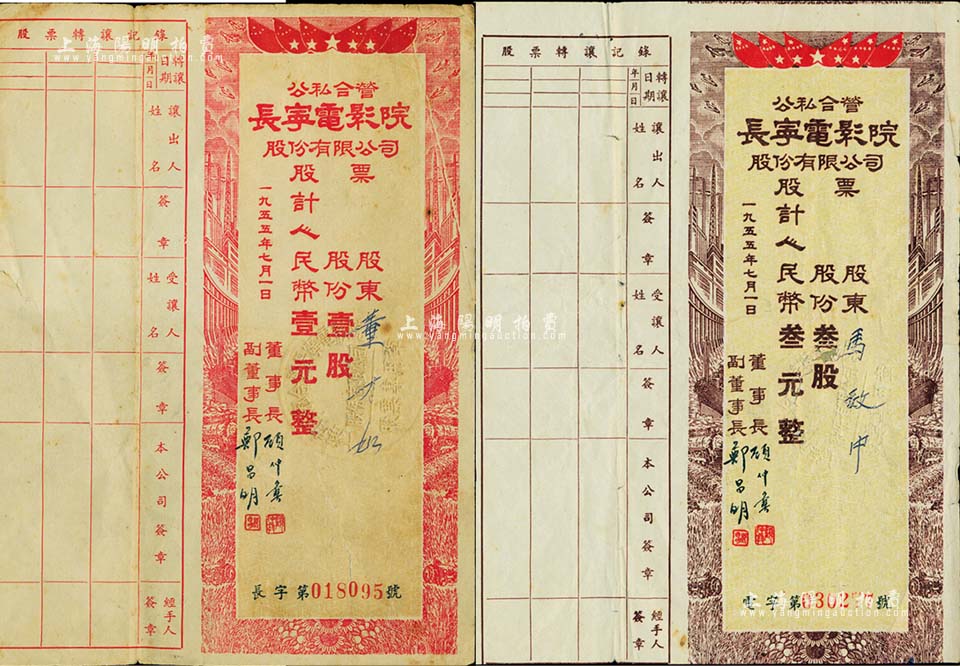 股票轉讓記錄
轉讓日期
年月日
讓出人姓名
簽章
受讓人姓名
簽章
本公司簽章
經手人簽章
公私合營
長寧電影院
股份有限公司
股票
股東 董
股份壹股
計人民幣壹元整
一九五五年七月一日
董事長
副董事長 鄭昌明
長字第018095號
股票轉讓記錄
轉讓日期
年月日
讓出人姓名
簽章
受讓人姓名
簽章
本公司簽章
經手人簽章
公私合營
長寧電影院
股份有限公司
股票
股東 馬敏中
股份叁股
計人民幣叁元整
一九五五年七月一日
董事長
副董事長 鄭昌明
電字第號
上海陽明拍賣
www.yangmingauction.com